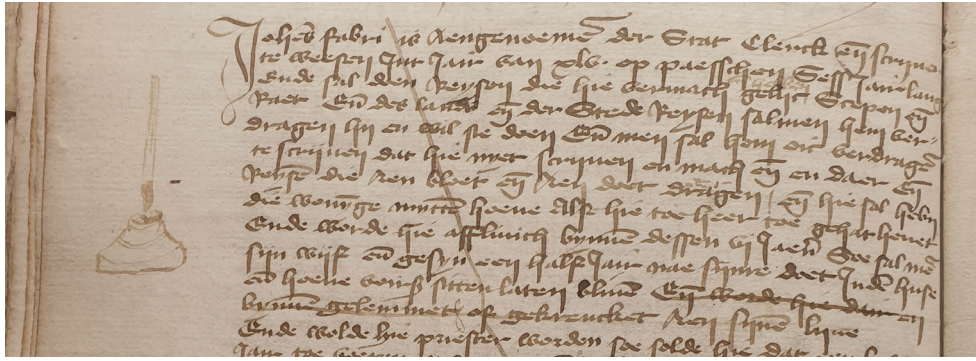 Johes fabri is aengenoeme der Stat Clerck en scriue
te weesen Int Jair van xlv. op paesschen Sess Jairelang
Ende sal den Reysen die hie vermach gelic Scepen en
Raet En des lants en der Stede Reysen salmen hem ver-
dragen hy en wil sie doen En men sal hem oic verdrage
te scriuen dat hie nyet scriuen en mach en en daer En
die aen bloet en aen doet dragen / en hie sal hebn
die wonige mitte hoeue Alse hie toe heer toe gehat heuet
Ende worde hie afflivich bynne dessen vj Jaern Soe sal me
syn wijf en gesyn een half Jair nae syne doet Inden huse
en hoeue sitten laten bliue En worde hie dair en
bynne gelemmet of gekrencket Aen syne liue
Ende wolde hie priester worden soe solde hie dat
Jair toe